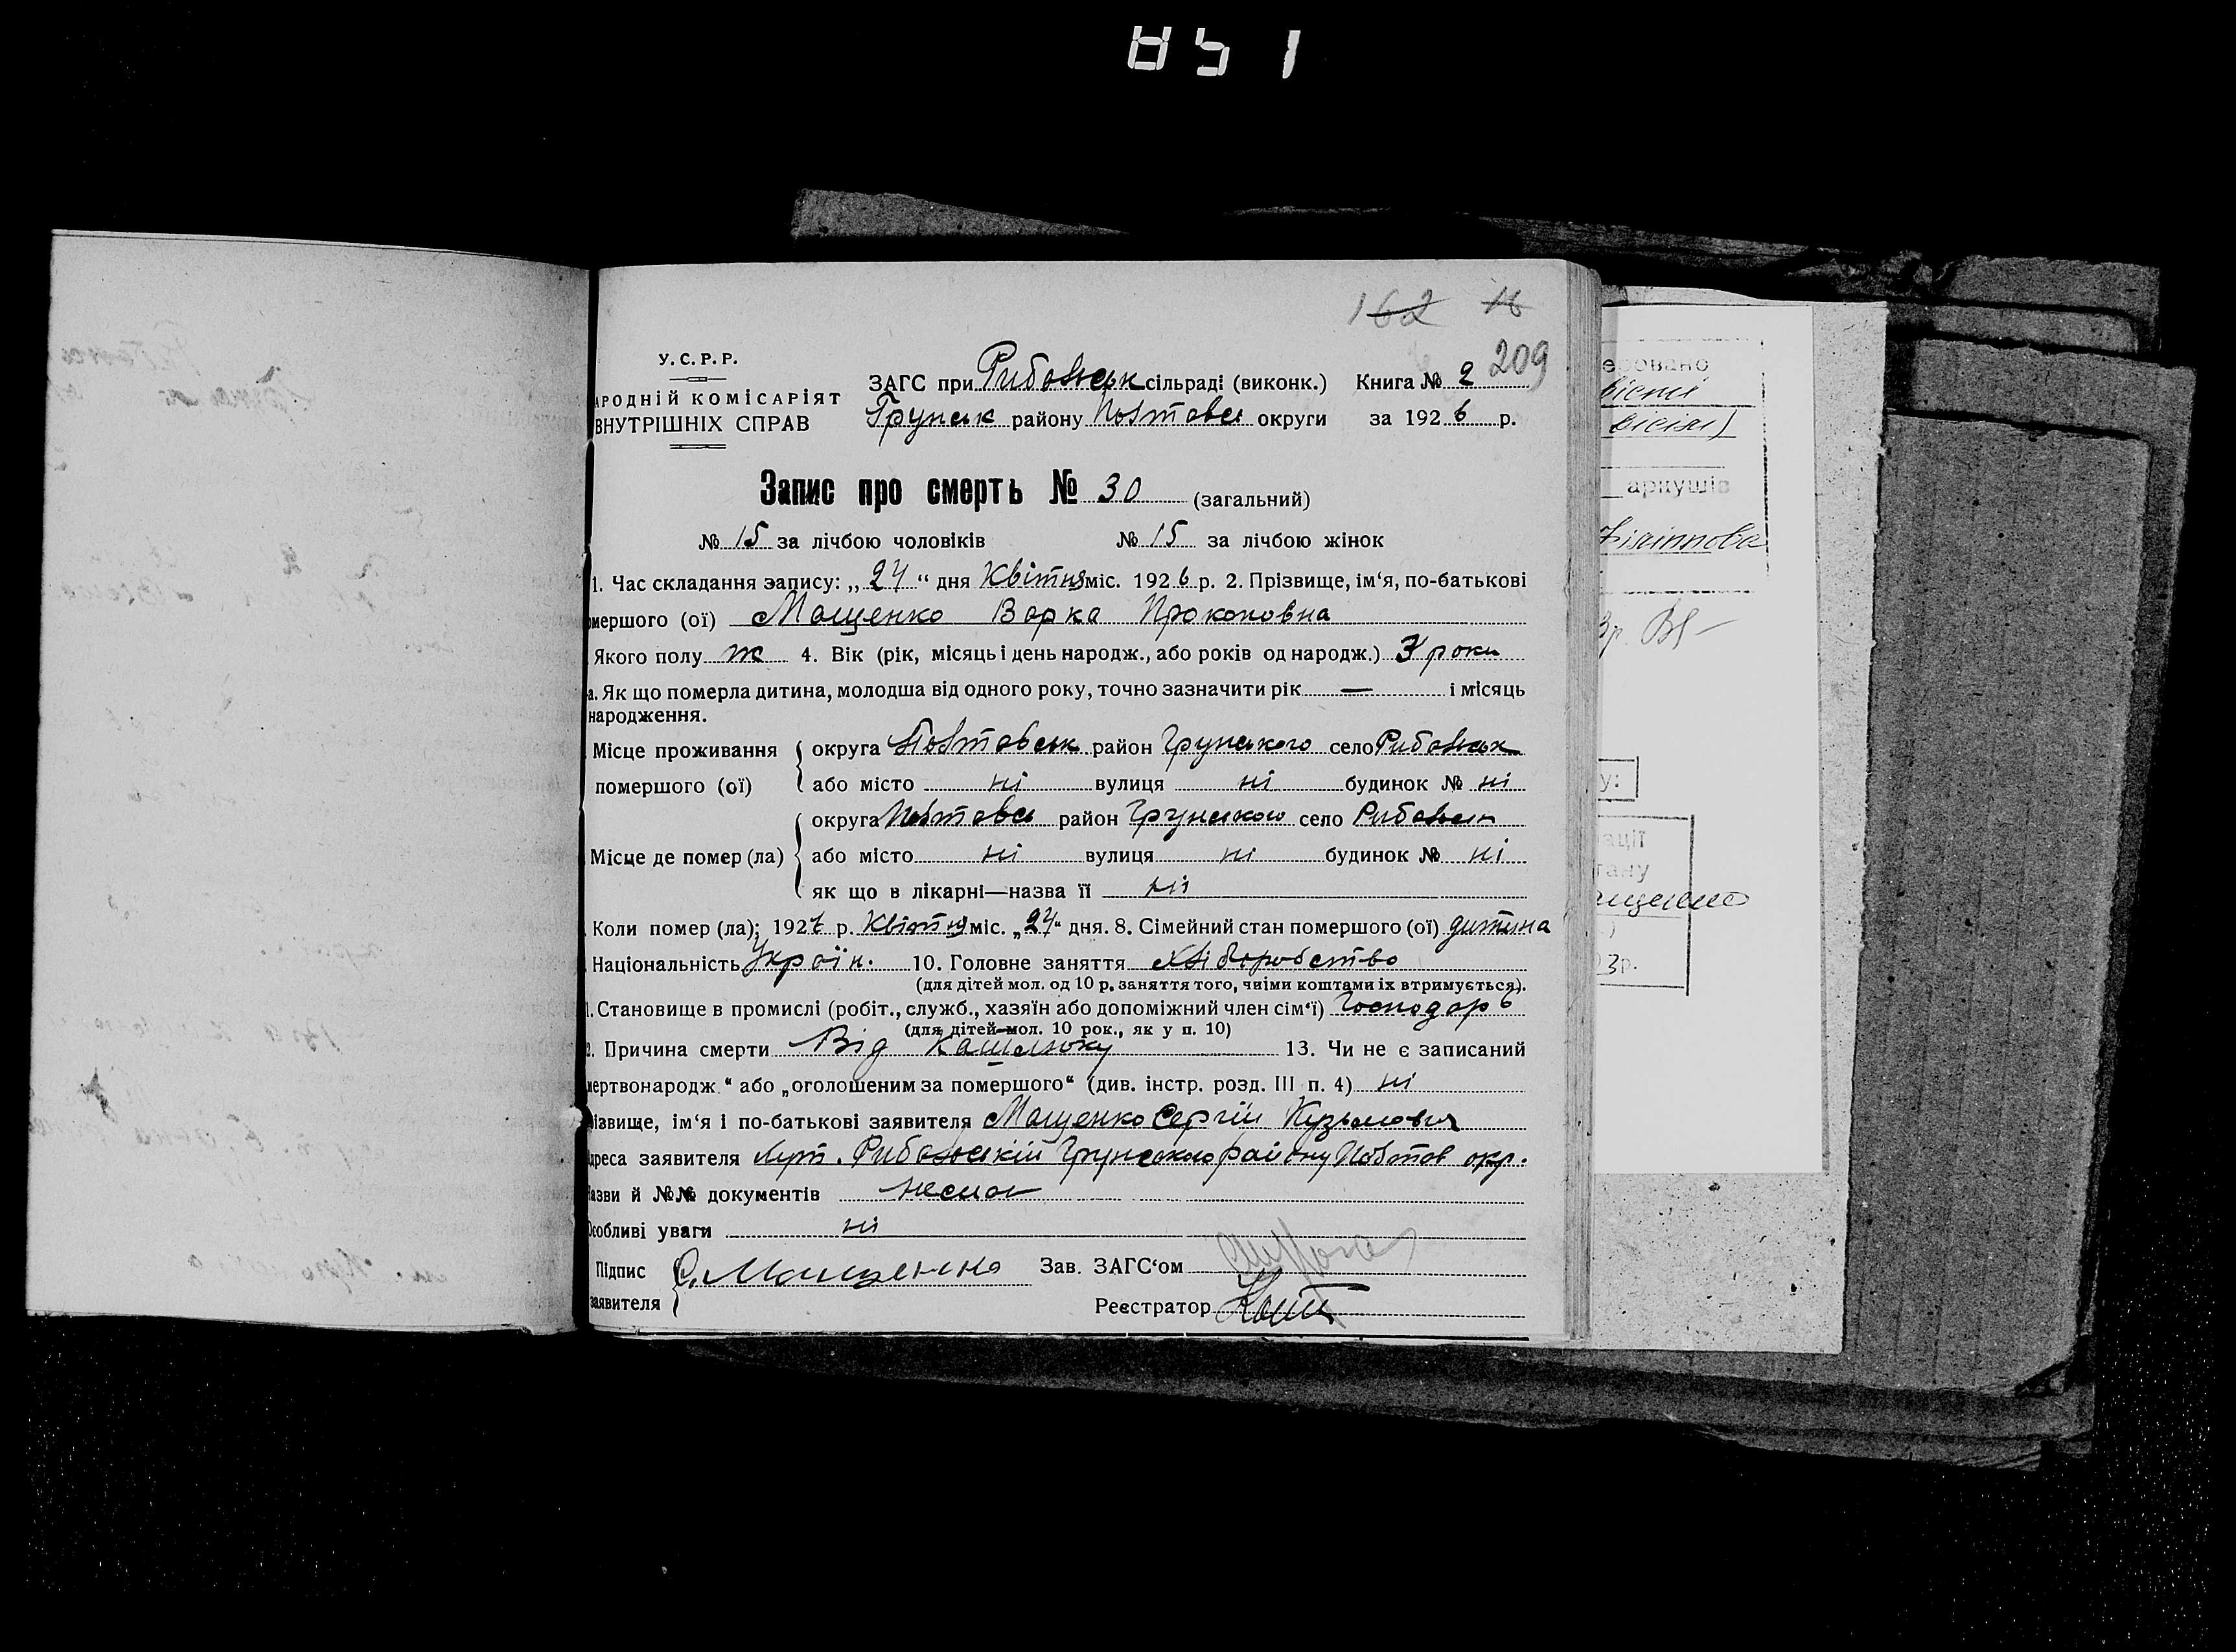 851
162 16
209
У.С.Р.Р.
АРОДНІЙ КОМІСАРІЯТ
ВНУТРІШНІХ СПРАВ
ЗАГС при Рибальськ сільраді (виконк.) Книга № 2
Грунськ району Полтавсь округи за 1926 р.
Запис про смерть № 30 (загальний)
№ 15 за лічбою чоловіків № 15 за лічбою жінок
1. Час складання запису: „24“ дня Квітня міс. 1926 р. 2. Прізвище, ім‘я, по-батькові
мершого (ої) Мащенко Варка Прокоповна
Якого полу ж 4. Вік (рік, місяць і день народж., або років од народж.) 3 роки
а. Як що померла дитина, молодша від одного року, точно зазначити рік — і місяць
народження.
Місце проживання округа Полтавськ район Грунського село Рибальськ
помершого (ої) або місто ні вулиця ні будинок № ні
округа Полтавсь район Грунського село Рибальськ
Місце де помер (ла) або місто ні вулиця ні будинок № ні
як що в лікарні—назва її ні
Коли помер (ла): 192 р. Квітня міс. „24“ дня. 8. Сімейний стан помершого (ої) дитина
Національність Україн. 10. Головне заняття хліборобство
(для дітей мол. од 10 р. заняття того, чиїми коштами їх втримується).
1. Становище в промислі (робіт., служб., хазяїн або допоміжний член сім‘ї) Господарь
(для дітей мол. 10 рок., як у п. 10)
2. Причина смерти Від кашлюку 13. Чи не є записаний
мертвонародж.“ або „оголошеним за помершого“ (див. інстр. розд. III п. 4) ні
різвище, ім‘я і по-батькові заявителя Мащенко Сергій Кузьмович
дреса заявителя хут. Рибальський Грунського району Полтав окр.
азви й №№ документів немає
Особливі уваги ні
Підпис С. Мащенко Зав. ЗАГС‘ом
заявителя Реєстратор
еровано
аркушів
Філіппова
3р.
у:
ації
тану
ащенко
)
3р.